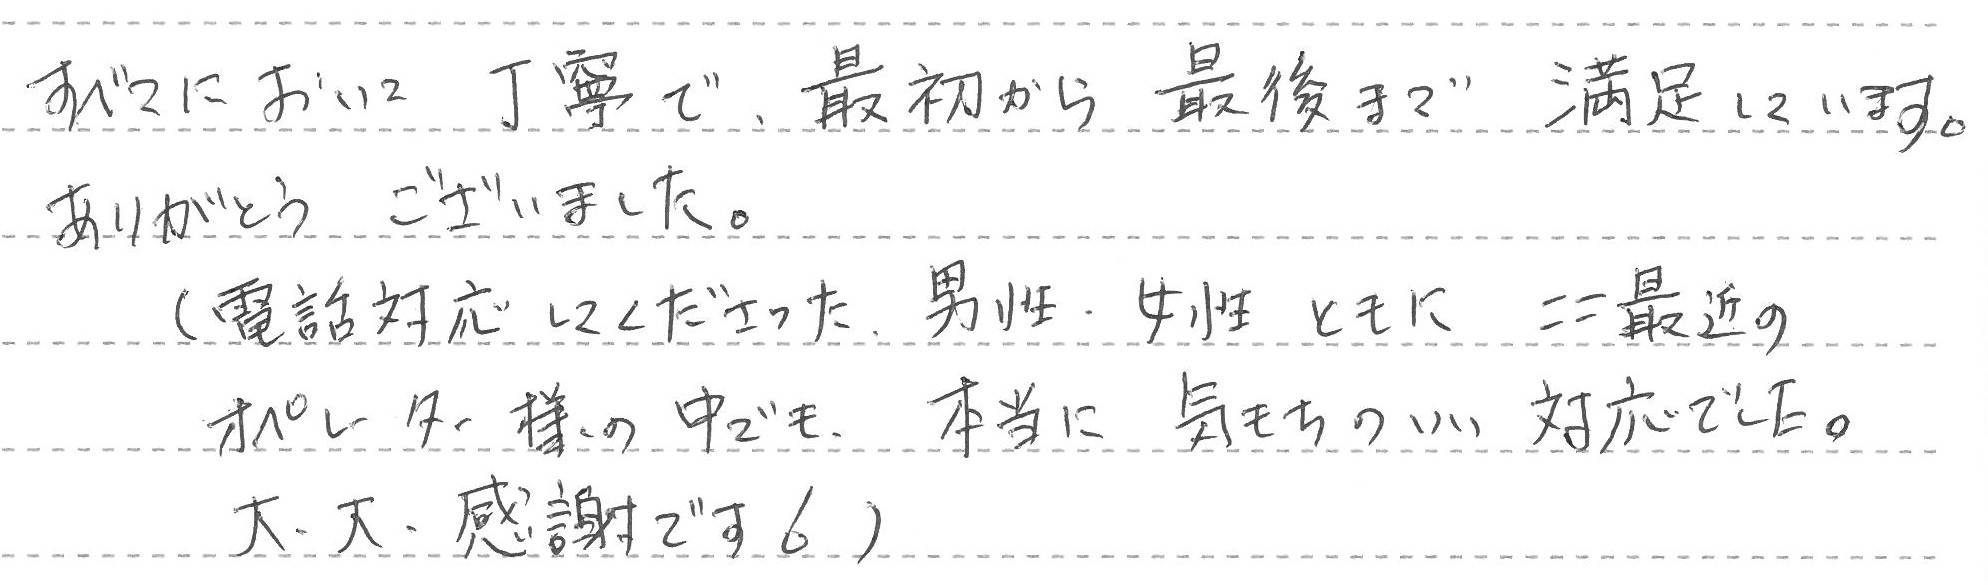 すべてにおいて 丁寧で、最初から 最後まで 満足しています。
ありがとう ございました。
(電話対応してくださった、男性・女性 ともに ここ最近の
オペレーター様の中でも、本当に 気もちのいい 対応でした。
大、大、感謝です)